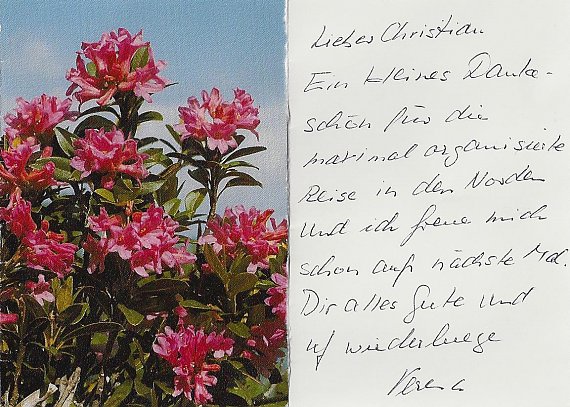 Lieber Christian
Ein kleines Danke-
schön für die
maximal organisierte
Reise in den Norden
Und ich freue mich
schon aufs nächste Mal.
Dir alles Gute und
uf wiederluege
Verena